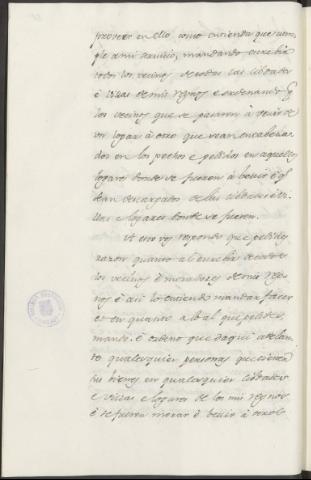 proveer en ello como entienda que cum-
ple a mi servicio, mandando escrebir
todos los vecinos de todas las cibdades
è villas de mis regnos è ordenando q̃
los vecinos que se pasaren à vevir de
un logar à otro que sean encabeza-
dos en los pechos e pedidos en aquellos
logares donde se fueren à bevir è q̃
sean descargados de las cibdades è vi-
llas e logares donde se fueren.
A esto vos respondo que pedides
razon quanto al escrebir de todos
los vecinos è moradores de mis reg-
nos è asi lo entiendo mandar facer
et en quanto à lo al que pedides,
mando è ordeno que daqui adelan-
te qualesquier personas que tienen
sus bienes en qualesquier cibdades
e villas e logares de los mis regnos
è se fueren morar è bevir à otros